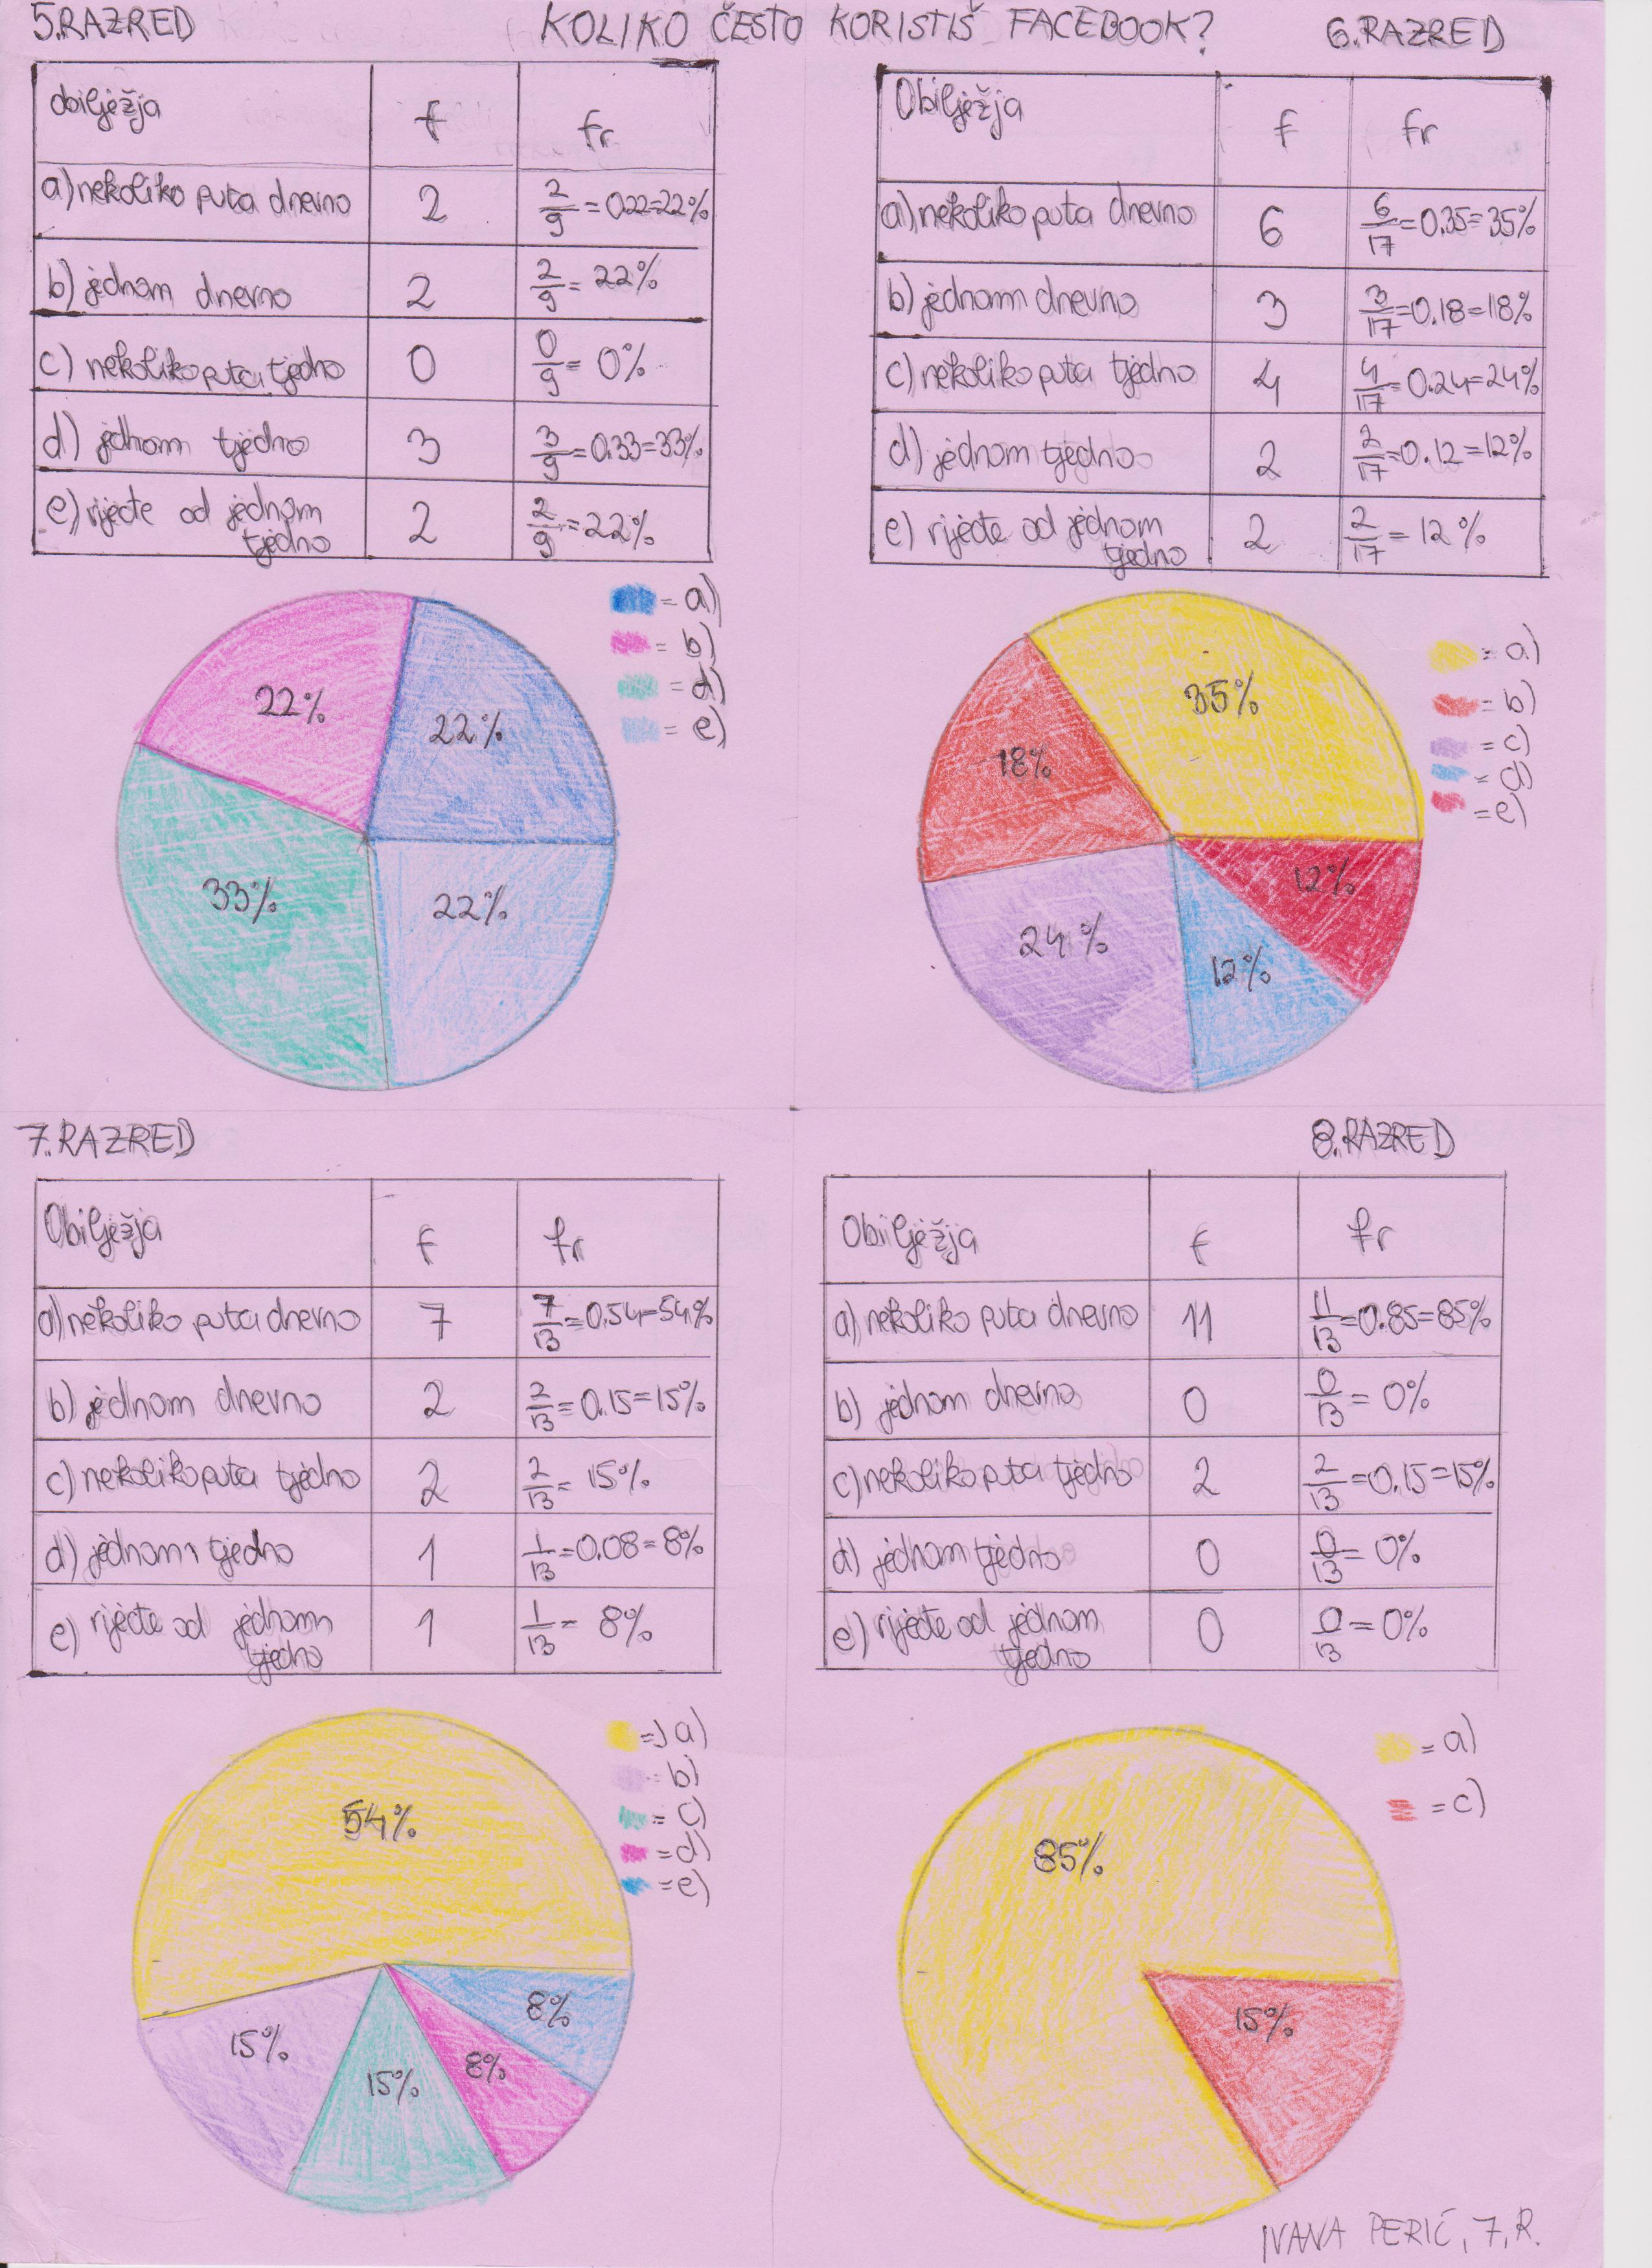 5.RAZRED
KOLIKO ČESTO KORISTIŠ FACEBOOK?
6.RAZRED
obilježja f fr
a) nekoliko puta dnevno 2 2/9 = 0.22=22%
b) jednom dnevno 2 2/9 = 22%
c) nekoliko puta tjedno 0 0/9 = 0%
d) jednom tjedno 3 3/9 = 0.33=33%
e) rijeđe od jednom 2 2/9 = 22%
tjedno
= a)
= b)
= d)
= e)
22%
22%
33%
22%
Obilježja f fr
a) nekoliko puta dnevno 6 6/17 = 0.35=35%
b) jednom dnevno 3 3/17 = 0.18=18%
c) nekoliko puta tjedno 4 4/17 = 0.24=24%
d) jednom tjedno 2 2/17 = 0.12=12%
e) rijeđe od jednom 2 2/17 = 12%
tjedno
= a)
= b)
= c)
= d)
= e)
35%
18%
12%
24%
12%
7.RAZRED
Obilježja f fr
a) nekoliko puta dnevno 7 7/13 = 0.54=54%
b) jednom dnevno 2 2/13 = 0.15=15%
c) nekoliko puta tjedno 2 2/13 = 15%
d) jednom tjedno 1 1/13 = 0.08=8%
e) rijeđe od jednom 1 1/13 = 8%
tjedno
= a)
= b)
= c)
= d)
= e)
54%
8%
15%
8%
15%
8.RAZRED
Obilježja f fr
a) nekoliko puta dnevno 11 11/13 = 0.85=85%
b) jednom dnevno 0 0/13 = 0%
c) nekoliko puta tjedno 2 2/13 = 0.15=15%
d) jednom tjedno 0 0/13 = 0%
e) rijeđe od jednom 0 0/13 = 0%
tjedno
= a)
= c)
85%
15%
IVANA PERIĆ, 7.R.